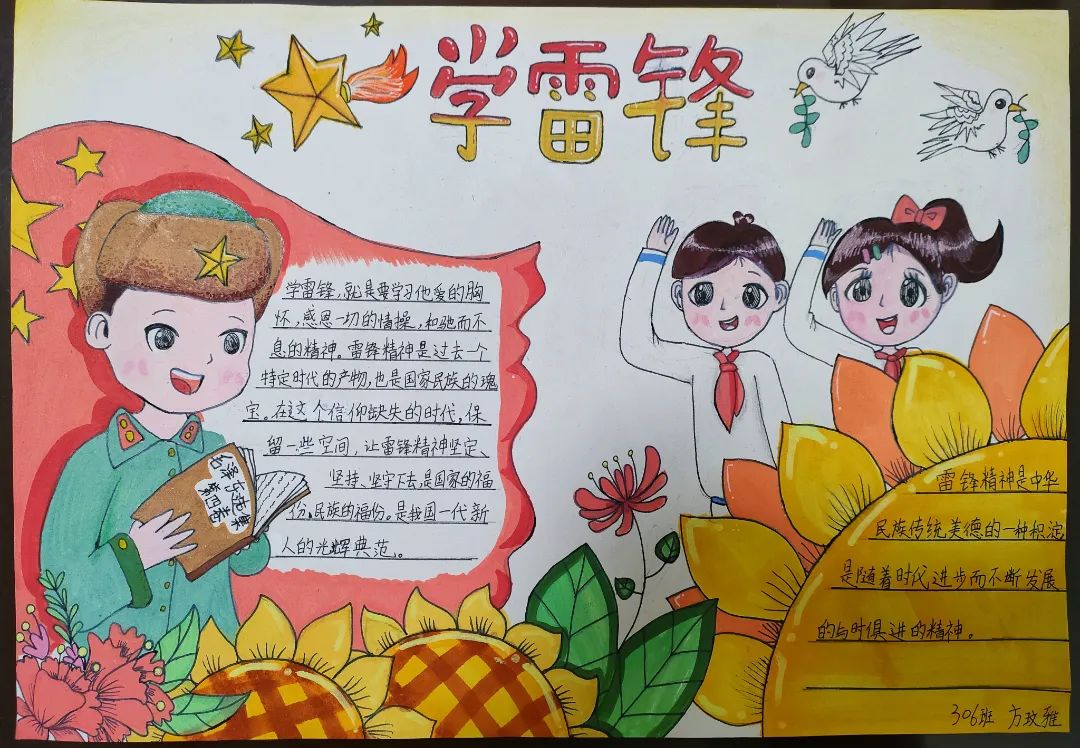 学雷锋
学雷锋，就是要学习他爱的胸
怀，感恩一切的情操，和驰而不
息的精神。雷锋精神是过去一个
特定时代的产物，也是国家民族的瑰
宝。在这个信仰缺失的时代，保
留一些空间，让雷锋精神坚定、
坚持、坚守下去，是国家的福
份，民族的福份。是我国一代新
人的光辉典范。
毛泽东选集
第四卷
雷锋精神是中华
民族传统美德的一种积淀
是随着时代，进步而不断发展
的与时俱进的精神。
306班 方玟雅